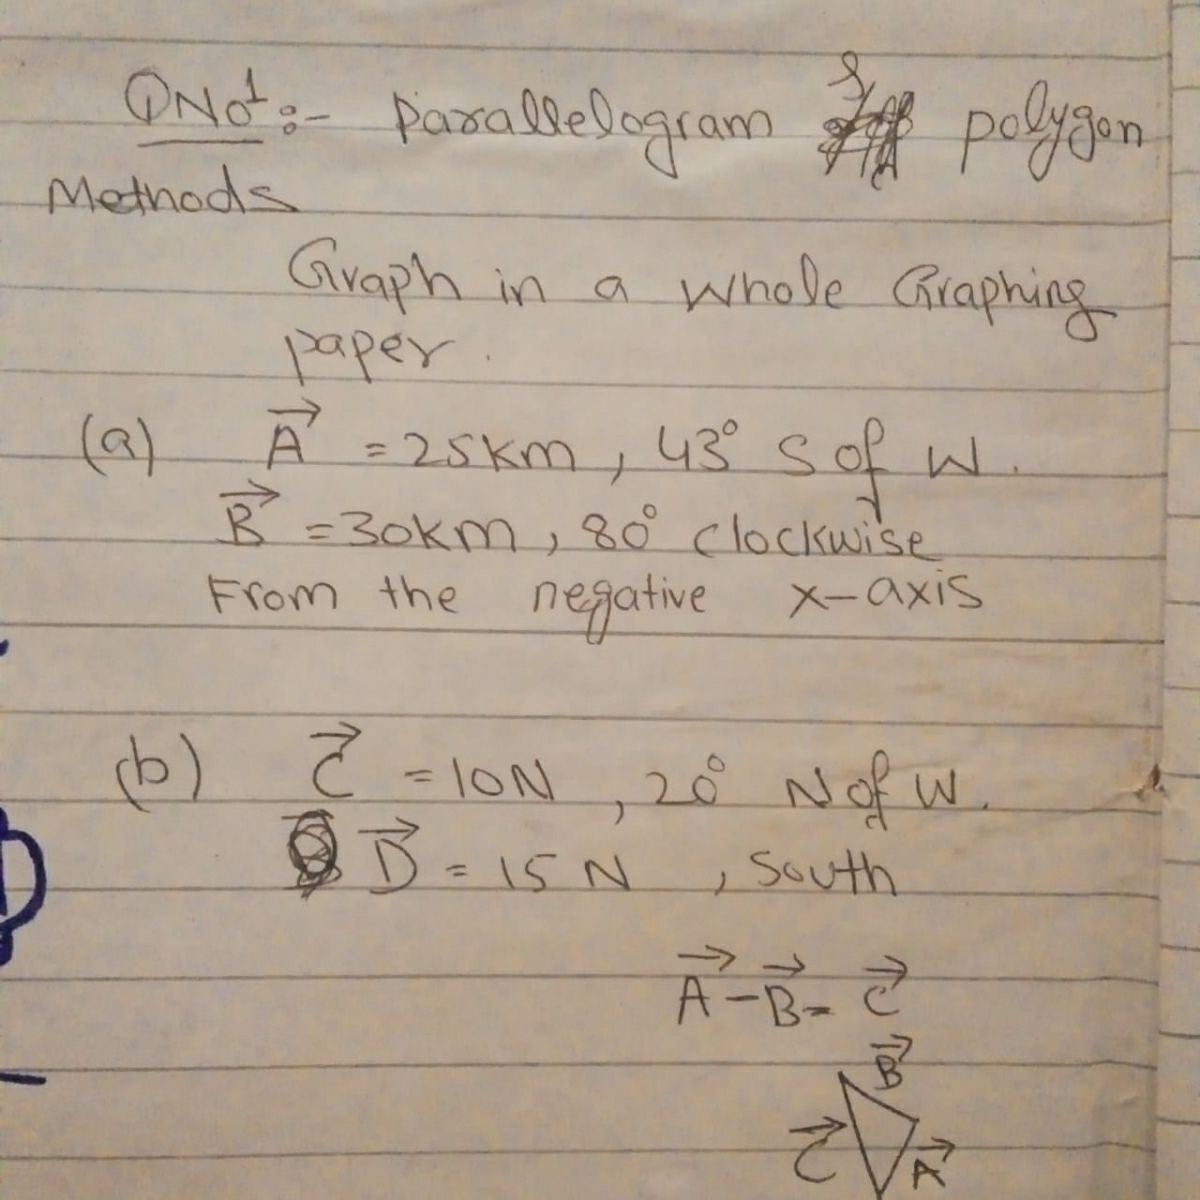 QNo1:- Parallelogram & polygon
Methods
Graph in a whole Graphing
paper.
(a) A⃗ = 25km, 43° S of W.
B⃗ = 30km, 80° clockwise
From the negative x-axis
(b) C⃗ = 10N, 20° N of W.
D⃗ = 15 N, South
A⃗ - B⃗ = C⃗
B⃗
C⃗ A⃗